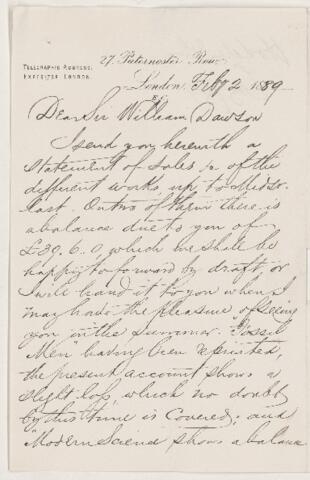 27, Paternoster Row
TELEGRAPHIC ADDRESS,
EXPOSITOR LONDON.
London, Feby 2 1889
Dear Sir William Dawson
I send you herewith a
statement of sales &c of the
different works, up to Midsr.
last. On two of them there is
a balance due to you of
£39.6.0 which we shall be
happy to forward by draft, or
I will hand it to you when I
may have the pleasure of seeing
you in the summer. "Fossil
Men" having been reprinted,
the present account shows a
slight loss, which no doubt
by this time is covered; and
"Modern Science" shows a balance